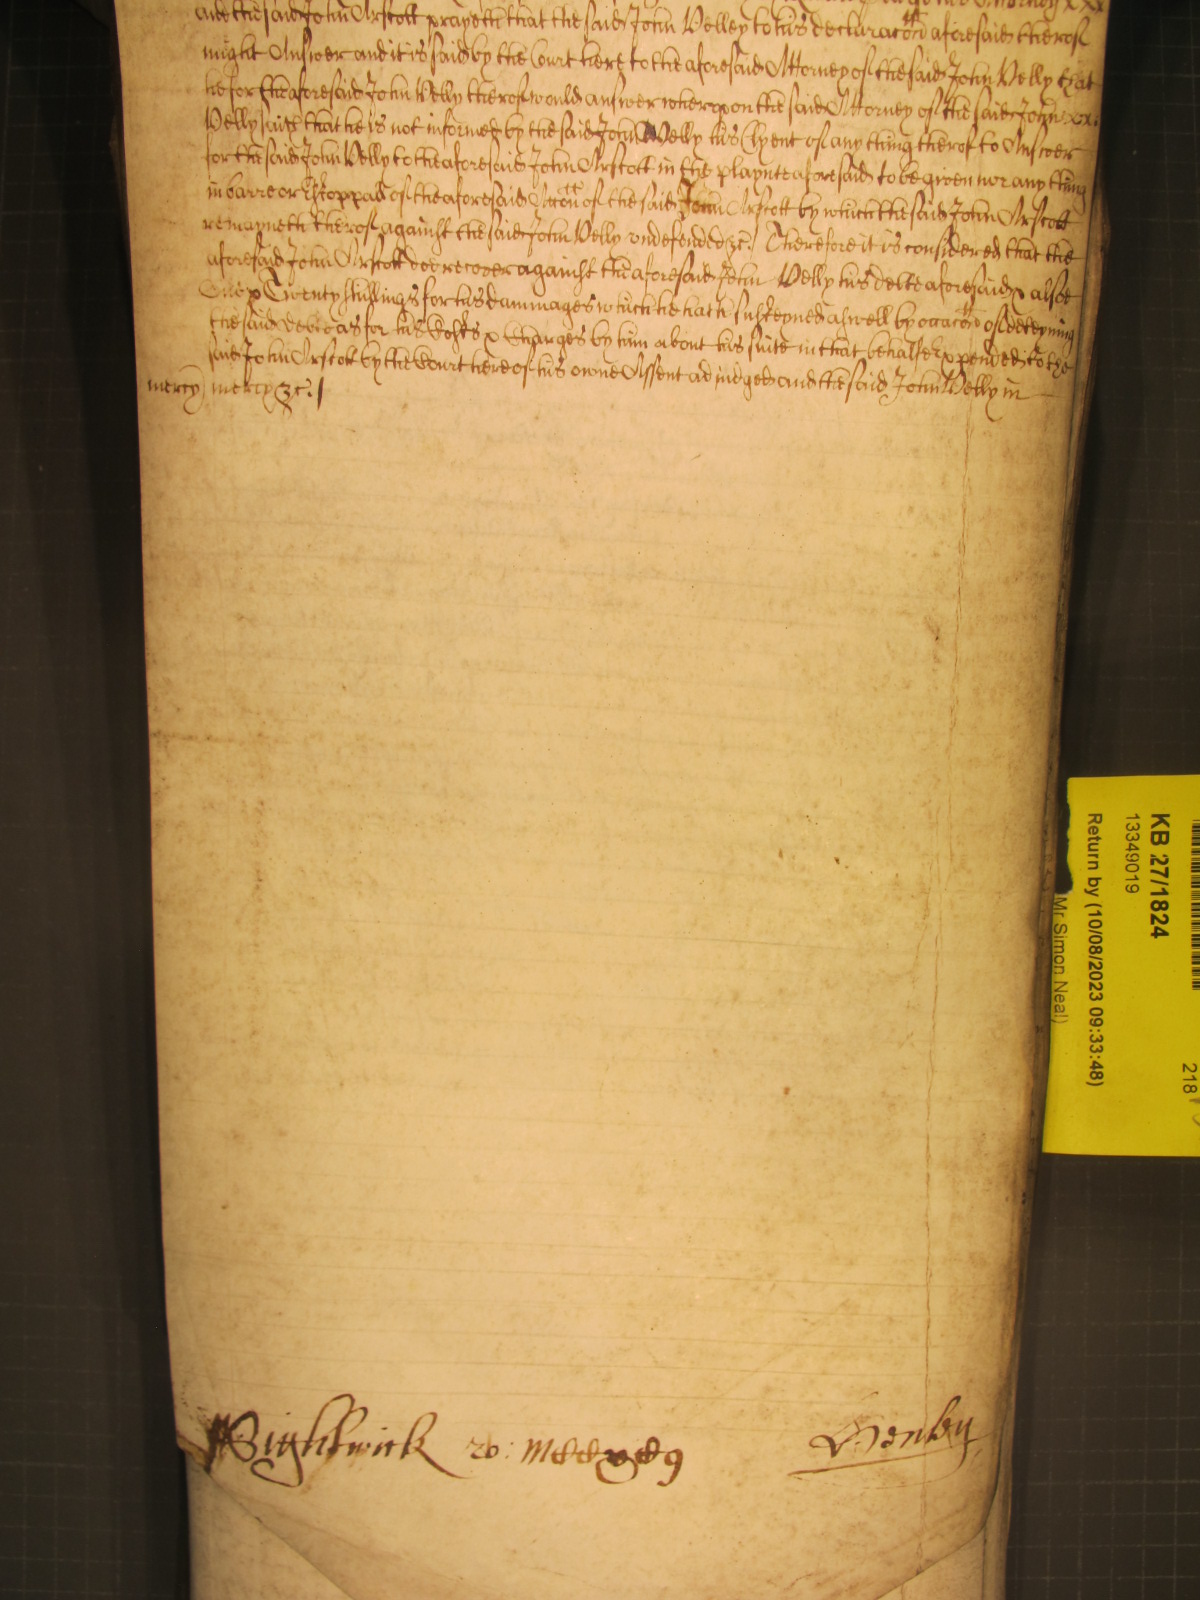 and the said John Arscott prayeth that the said John Velley to his declaracōn aforesaid therof
might Answer and it is said by the Court here to the aforesaid Attorney of the said John Velly that
he for the aforesaid John Velly therof would answer wherupon the said Attorney of the said John
Velly saith that he is not informed by the said John Velly his Clyent of any thing therof to Answer
for the said John Velly to the aforesaid John Arscott in the playnte aforesaid to be given nor any thing
in barre or Estoppall of the aforesaid Accōn of the said John Arscott by which the said John Arscott
remayneth therof against the said John Velly undefended &c. Therefore it is considered that the
aforesaid John Arscott doe recover against the aforesaid John Velly his debte aforesaid & alsoe
Twenty shillings for his dammages which he hath susteyned aswell by occacōn of deteyning
the said debte as for his Costs & Charges by him about his suite in that behalfe expended to the
said John Arscott by the Court here of his owne Assent adjudged and the said John Velly in
mercy mercy &c.
Henley
KB 27/1824
13349019
Return by (10/08/2023 09:33:48)
Mr Simon Neal)
218